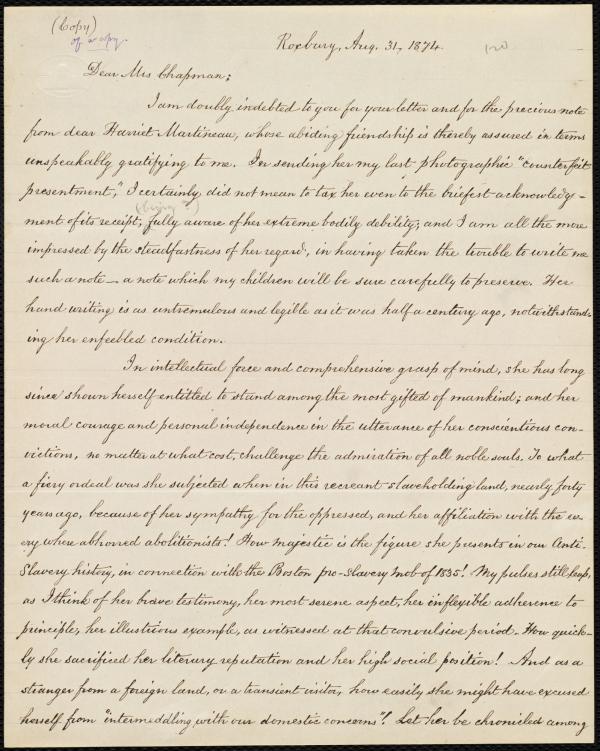 (Copy)
of a copy.
Roxbury, Aug. 31, 1874.
120
Dear Mrs Chapman:
I am doubly indebted to you for your letter and for the precious note
from dear Harriet Martineau, whose abiding friendship is thereby assured in terms
unspeakably gratifying to me. In sending her my last photographic "counterfeit
presentment," I certainly did not mean to tax her even to the briefest acknowledg-
(being?)
ment of its receipt, fully aware of her extreme bodily debility; and I am all the more
impressed by the steadfastness of her regard, in having taken the trouble to write me
such a note—a note which my children will be sure carefully to preserve. Her
hand writing is as untremulous and legible as it was half a century ago, notwithstand-
ing her enfeebled condition.
In intellectual force and comprehensive grasp of mind, she has long
since shown herself entitled to stand among the most gifted of mankind; and her
moral courage and personal independence in the utterance of her conscientious con-
victions, no matter at what cost, challenge the admiration of all noble souls. To what
a fiery ordeal was she subjected when in this recreant slaveholding land, nearly forty
years ago, because of her sympathy for the oppressed, and her affiliation with the ev-
ery where abhorred abolitionists! How majestic is the figure she presents in our Anti-
Slavery history, in connection with the Boston pro-Slavery mob of 1835! My pulses still leap,
as I think of her brave testimony, her most serene aspect, her inflexible adherence to
principle, her illustrious example, as witnessed at that convulsive period. How quick-
ly she sacrificed her literary reputation and her high social position! And as a
stranger from a foreign land, or a transient visitor, how easily she might have excused
herself from "intermeddling with our domestic concerns"! Let her be chronicled among